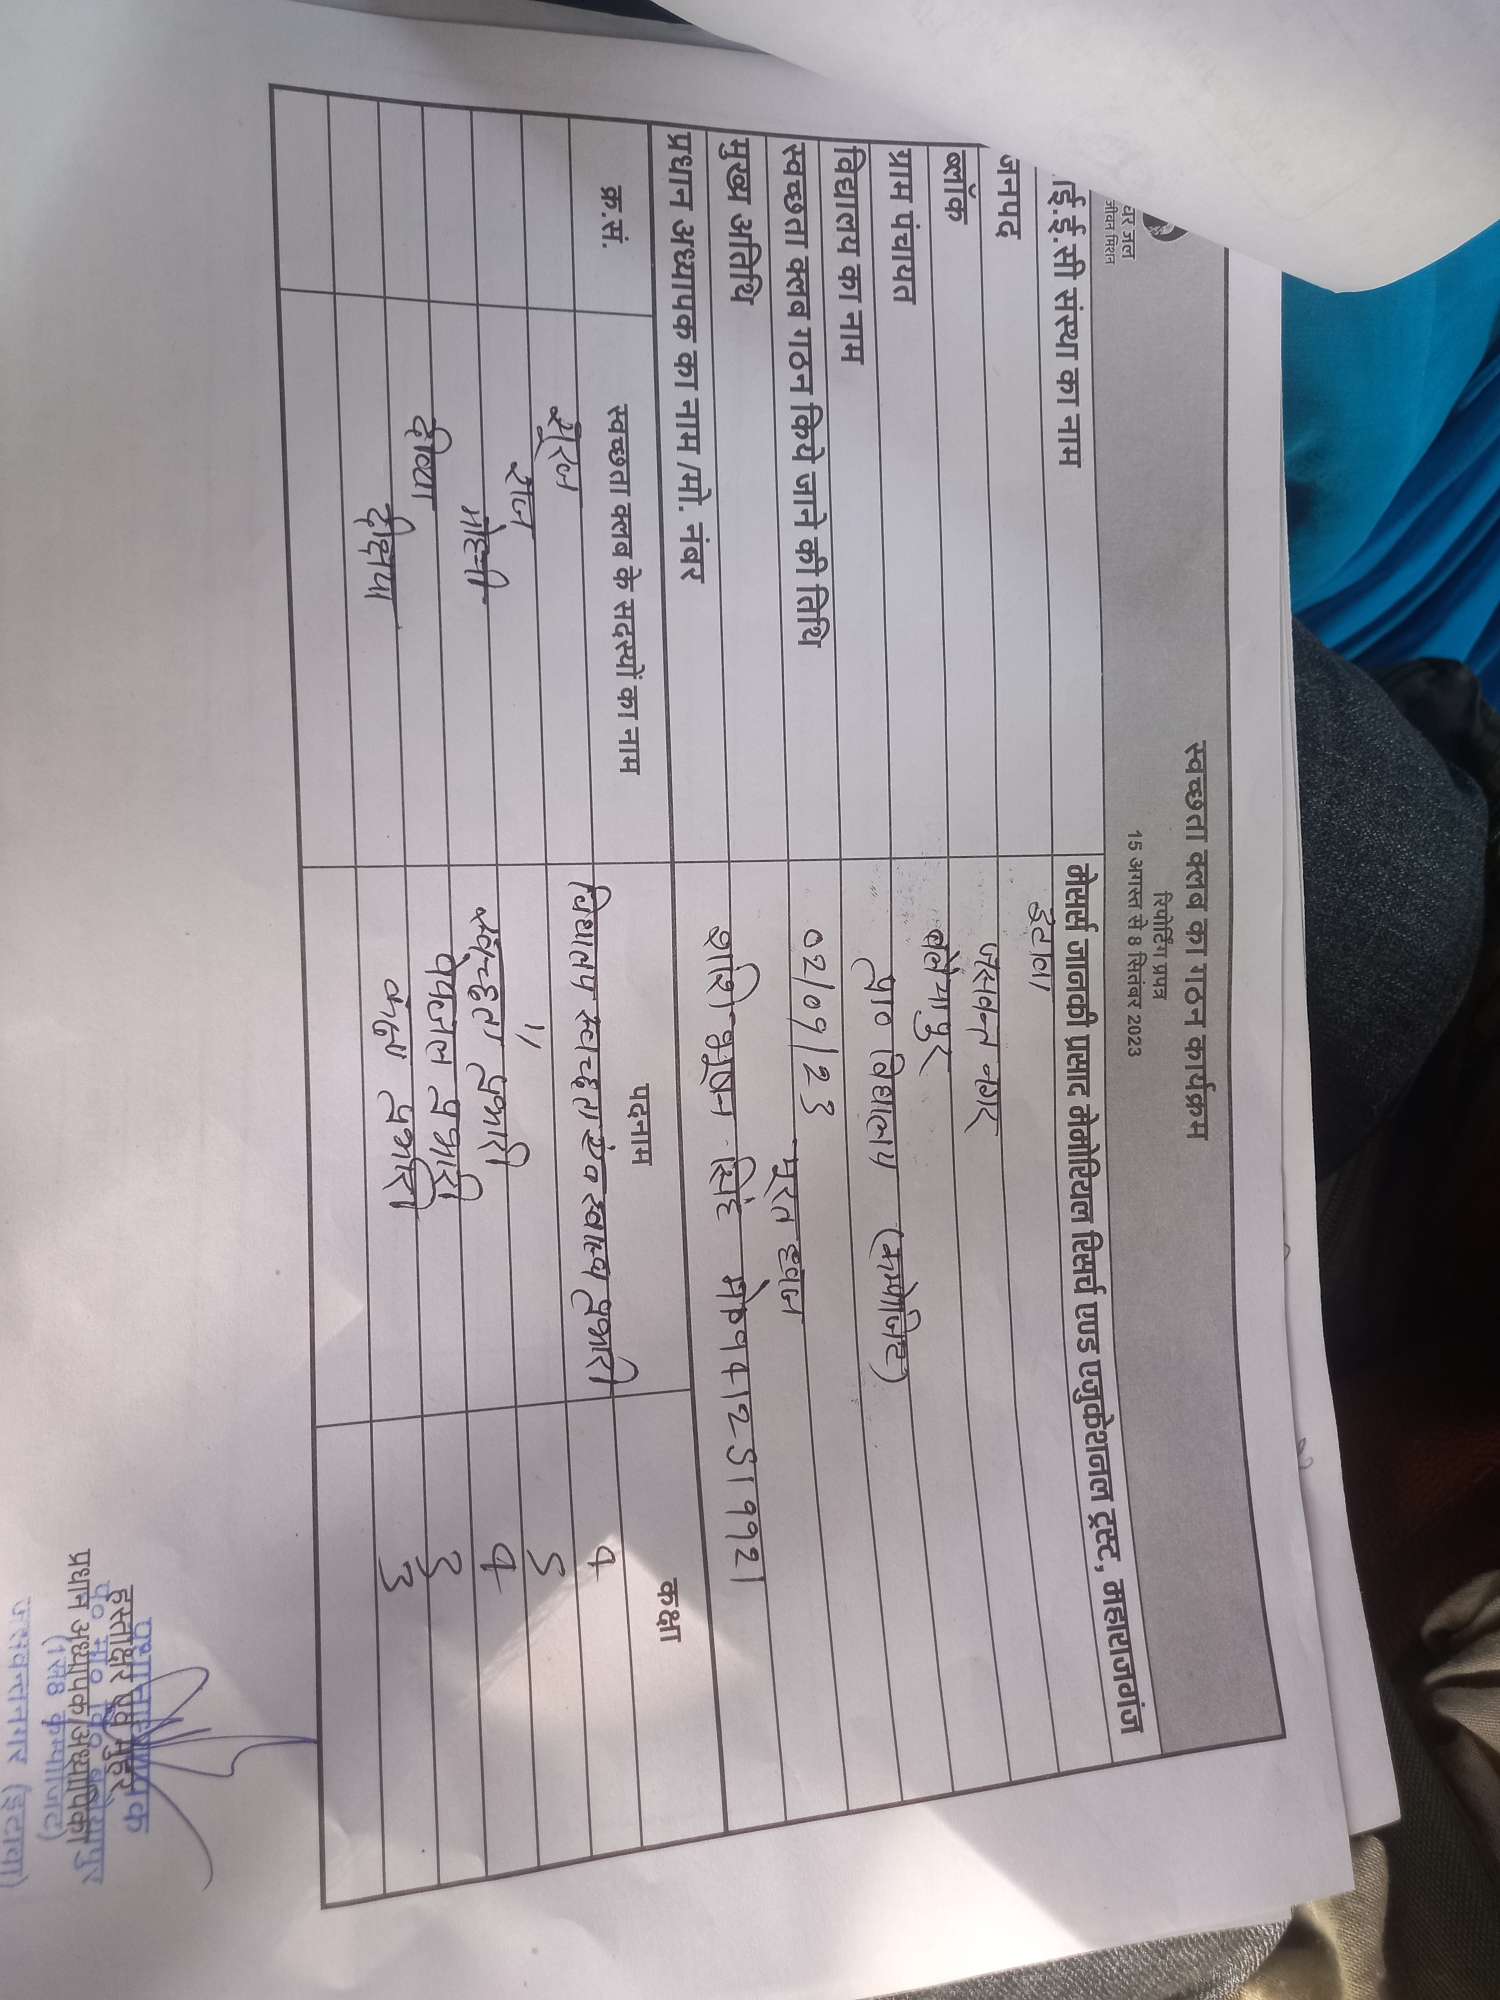 घर जल
जीवन मिशन
स्वच्छता क्लब का गठन कार्यक्रम
रिपोर्टिंग प्रपत्र
15 अगस्त से 8 सितंबर 2023
ई.ई.सी संस्था का नाम मेसर्स जानकी प्रसाद मेमोरियल रिसर्च एण्ड एजुकेशनल ट्रस्ट, महाराजगंज
जनपद इटावा
ब्लॉक जसवन्त नगर
ग्राम पंचायत
विद्यालय का नाम प्रा० विद्यालय (कम्पोजिट)
स्वच्छता क्लब गठन किये जाने की तिथि 02/09/23
मुख्य अतिथि
प्रधान अध्यापक का नाम /मो. नंबर शशि भूषन सिंह मो० 9412519921
क्र.सं. स्वच्छता क्लब के सदस्यों का नाम पदनाम कक्षा
सूरज विद्यालय स्वच्छता एंव स्वास्थ्य प्रभारी 4
राज " 5
मोहनी स्वच्छता प्रभारी 4
दीव्या पेयजल प्रभारी 3
दीक्षा कक्षा प्रभारी 3
प्रधानाध्यापक
हस्ताक्षर एवं मुहर
प्रधान अध्यापक/अध्यापिका
(1 से 8 कम्पोजिट)
जसवन्तनगर (इटावा)